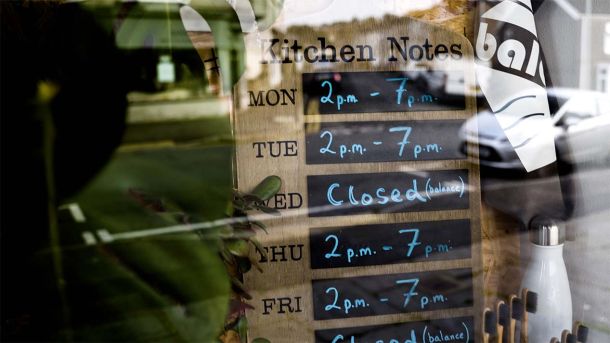 Kitchen Notes
MON 2p.m. - 7p.m.
TUE 2p.m. - 7p.m.
WED Closed (balance)
THU 2p.m. - 7p.m.
FRI 2p.m. - 7p.m.
Closed (balance)